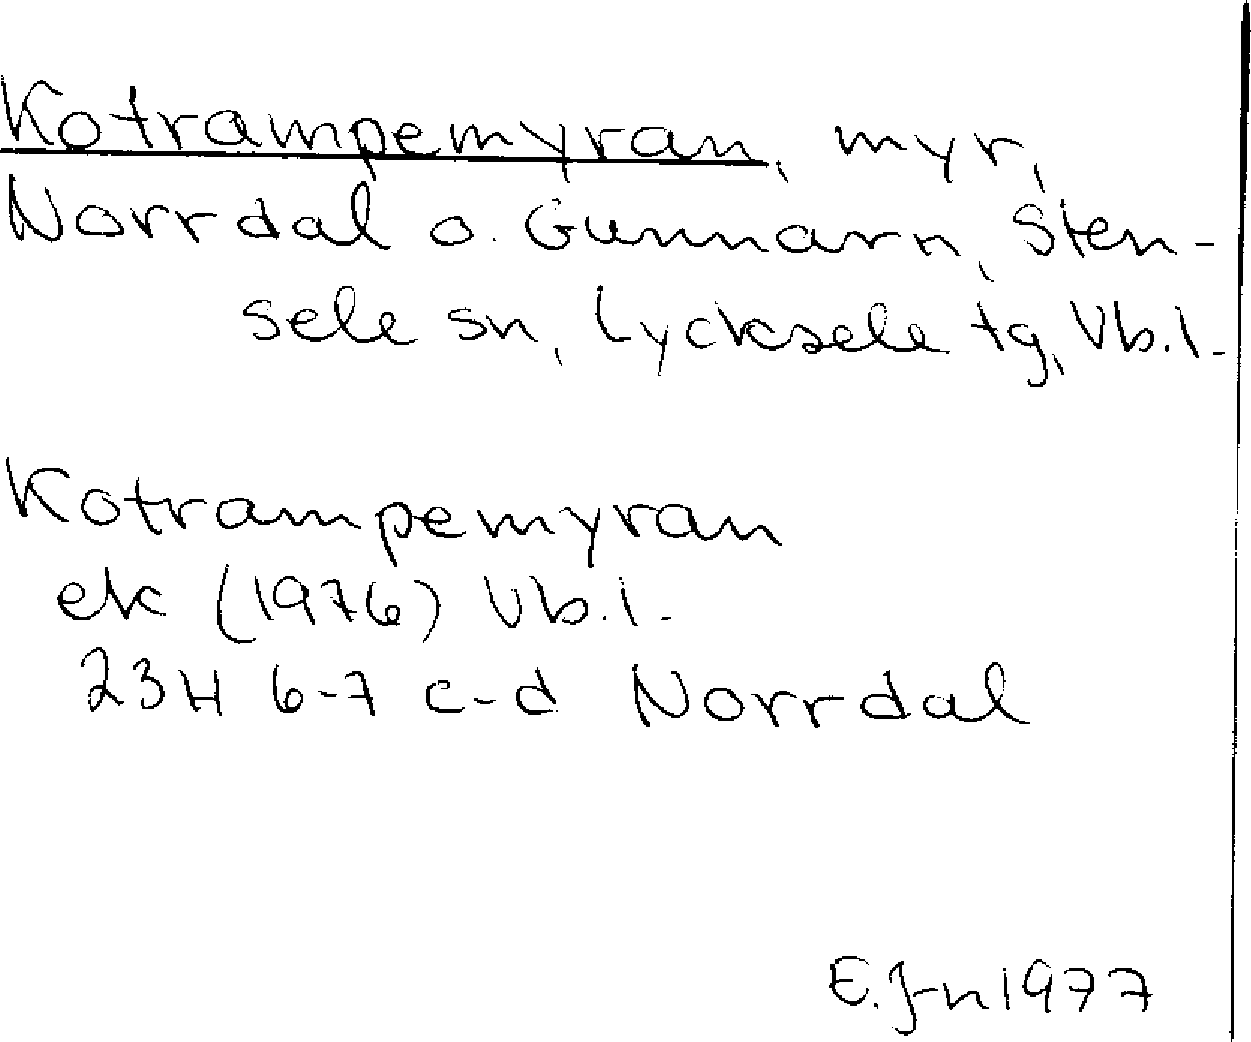 Kotrampemyran, myr,
Norrdal o. Gunnarn, Sten-
sele sn, Lycksele tg, Vb.l.
Kotrampemyran
ek (1976) Vb.l.
23H 6-7 c-d Norrdal
E.J-n 1977